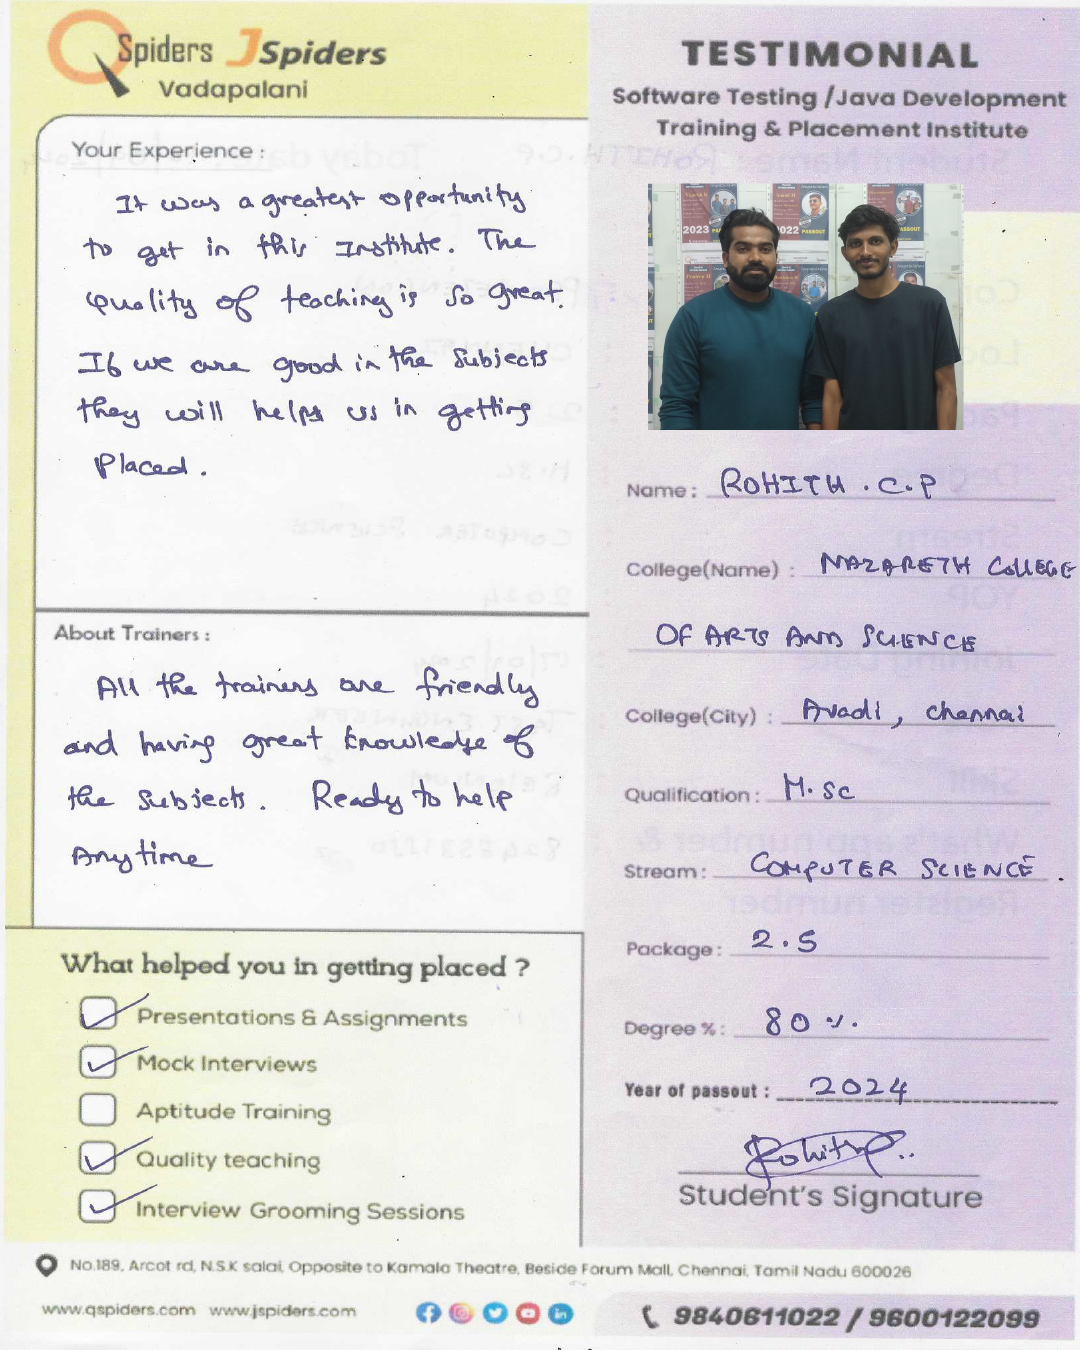 QSpiders JSpiders
Vadapalani
Your Experience :
It was a greatest opportunity
to get in this Institute. The
quality of teaching is so great.
If we are good in the subjects
they will helps us in getting
Placed.
About Trainers :
All the trainers are friendly
and having great knowledge of
the subjects. Ready to help
Anytime
What helped you in getting placed ?
Presentations & Assignments
Mock Interviews
Aptitude Training
Quality teaching
Interview Grooming Sessions
TESTIMONIAL
Software Testing /Java Development
Training & Placement Institute
2023
2022
PASSOUT
Name : ROHITH . C.P
College(Name) : NAZARETH COLLEGE
OF ARTS AND SCIENCE
College(City) : Avadi, chennai
Qualification : M.sc
Stream : COMPUTER SCIENCE.
Package : 2.5
Degree % : 80 %.
Year of passout : 2024
Rohith
Student's Signature
No.189, Arcot rd, N.S.K salai, Opposite to Kamala Theatre, Beside Forum Mall, Chennai, Tamil Nadu 600026
www.qspiders.com www.jspiders.com
9840611022 / 9600122099